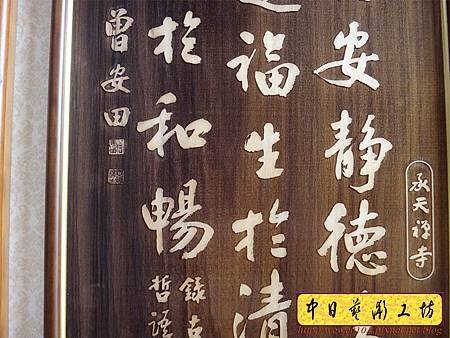 承天禪寺
安靜德
福生於清
於和暢
錄古
哲語
曾安田
中日藝彫工坊